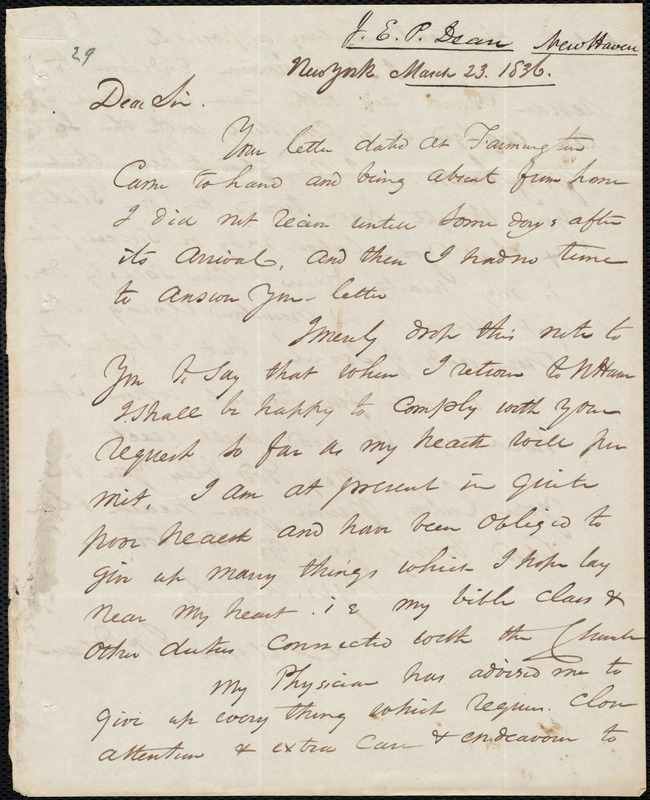 29
J. E. P. Dean New Haven
New York March 23. 1836.
Dear Sir.
Your letter dated at Farmington
Came to hand and being absent from home
I did not recive untill some days after
its arrival, and then I had no time
to answer your letter
I merely drop this note to
you to say that when I return to NHaven
I shall be happy to comply with your
request so far as my health will per
mit. I am at present in quite
poor health and have been obliged to
give up many things which I hope lay
near my heart. i e my bible class &
other duties connected with the Church
My Physician has advised me to
give up every thing which requires close
attention & extra care & endeavour to